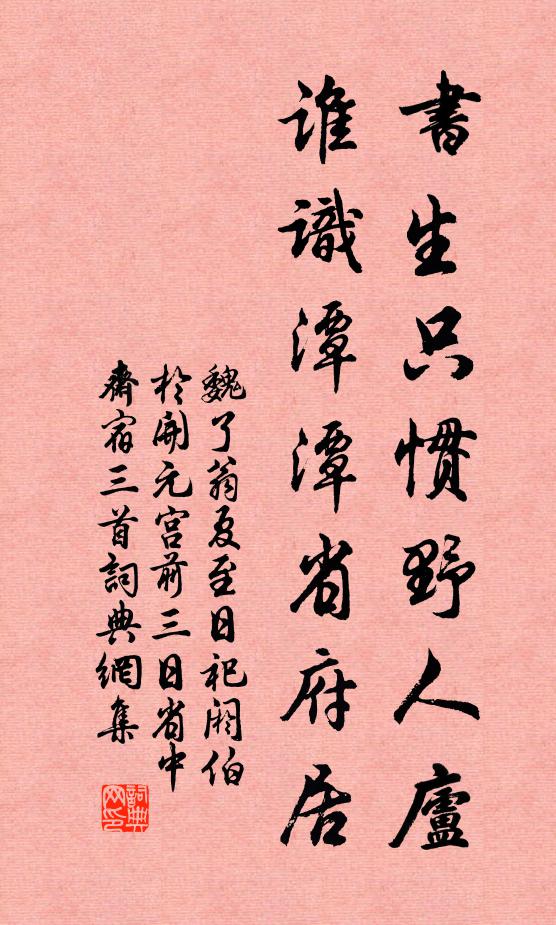 書生只慣野人廬
誰識潭潭省府居
魏了翁夏至日祀闕伯
於開元宮前三日省中
齋宿三首詞典網集
詞典
网印